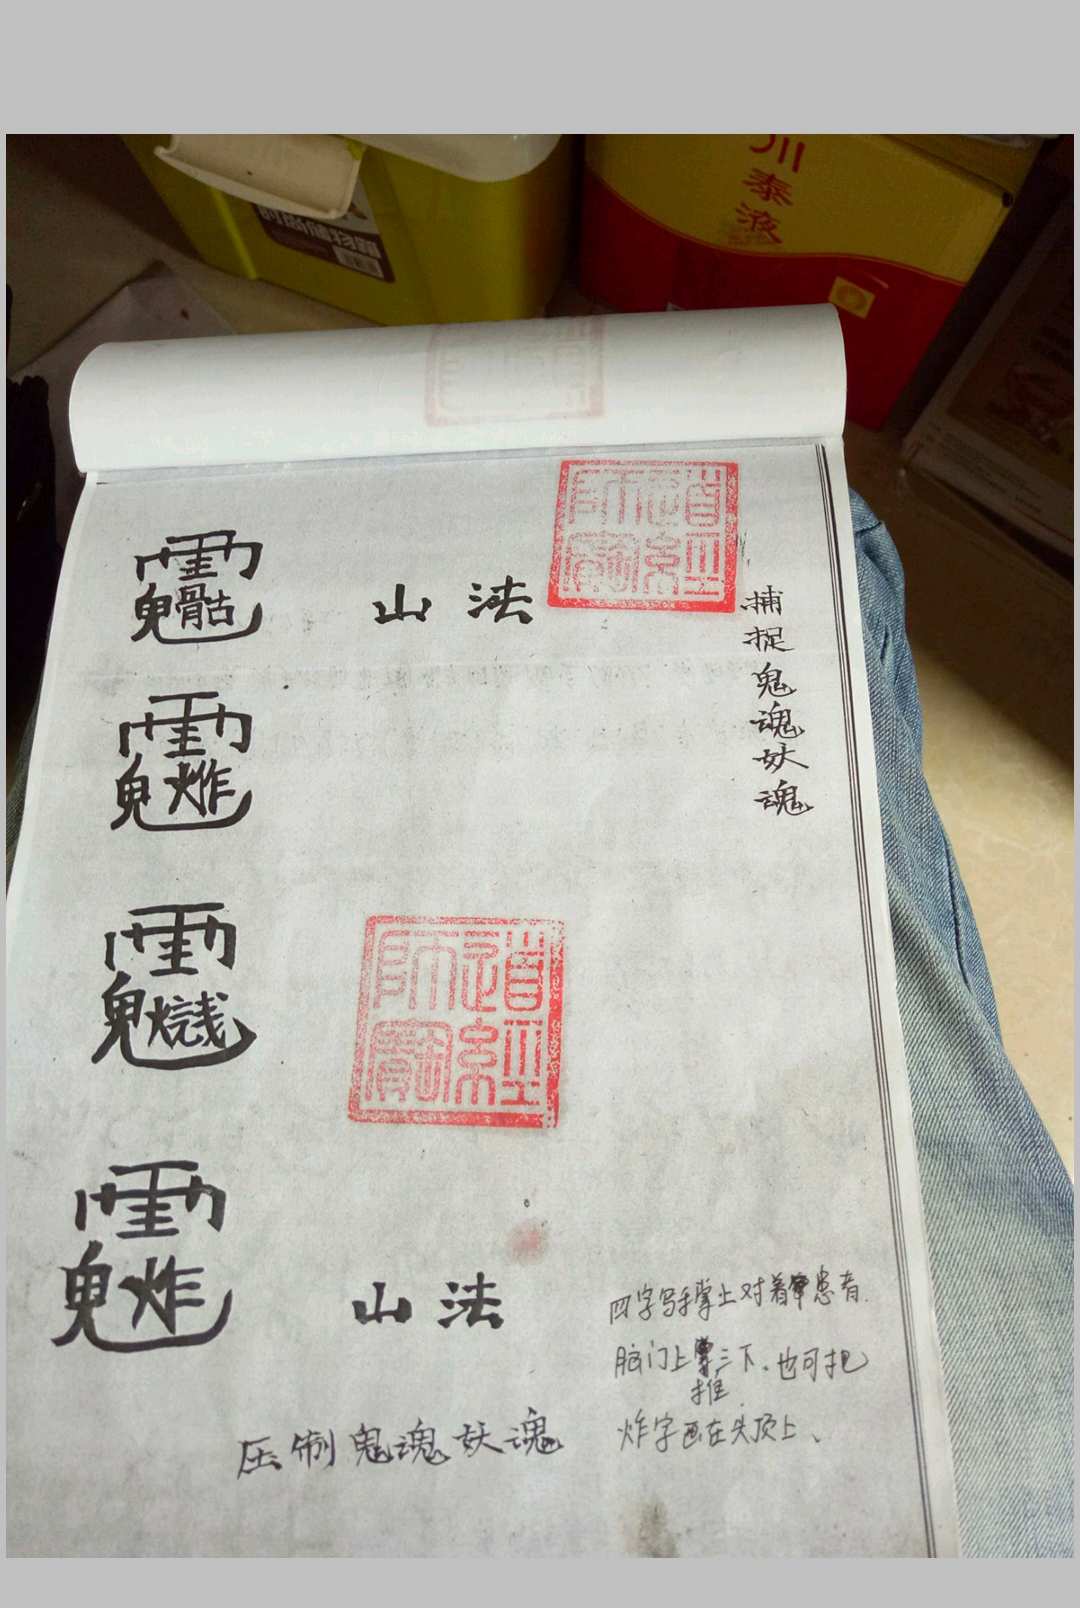 川泰液
时尚储物箱
道经师宝
法山
捕捉鬼魂妖魂
道经師寳
法山
压制鬼魂妖魂
四字写手掌上对着患者
脑门上推三下.也可把
炸字画在头顶上、